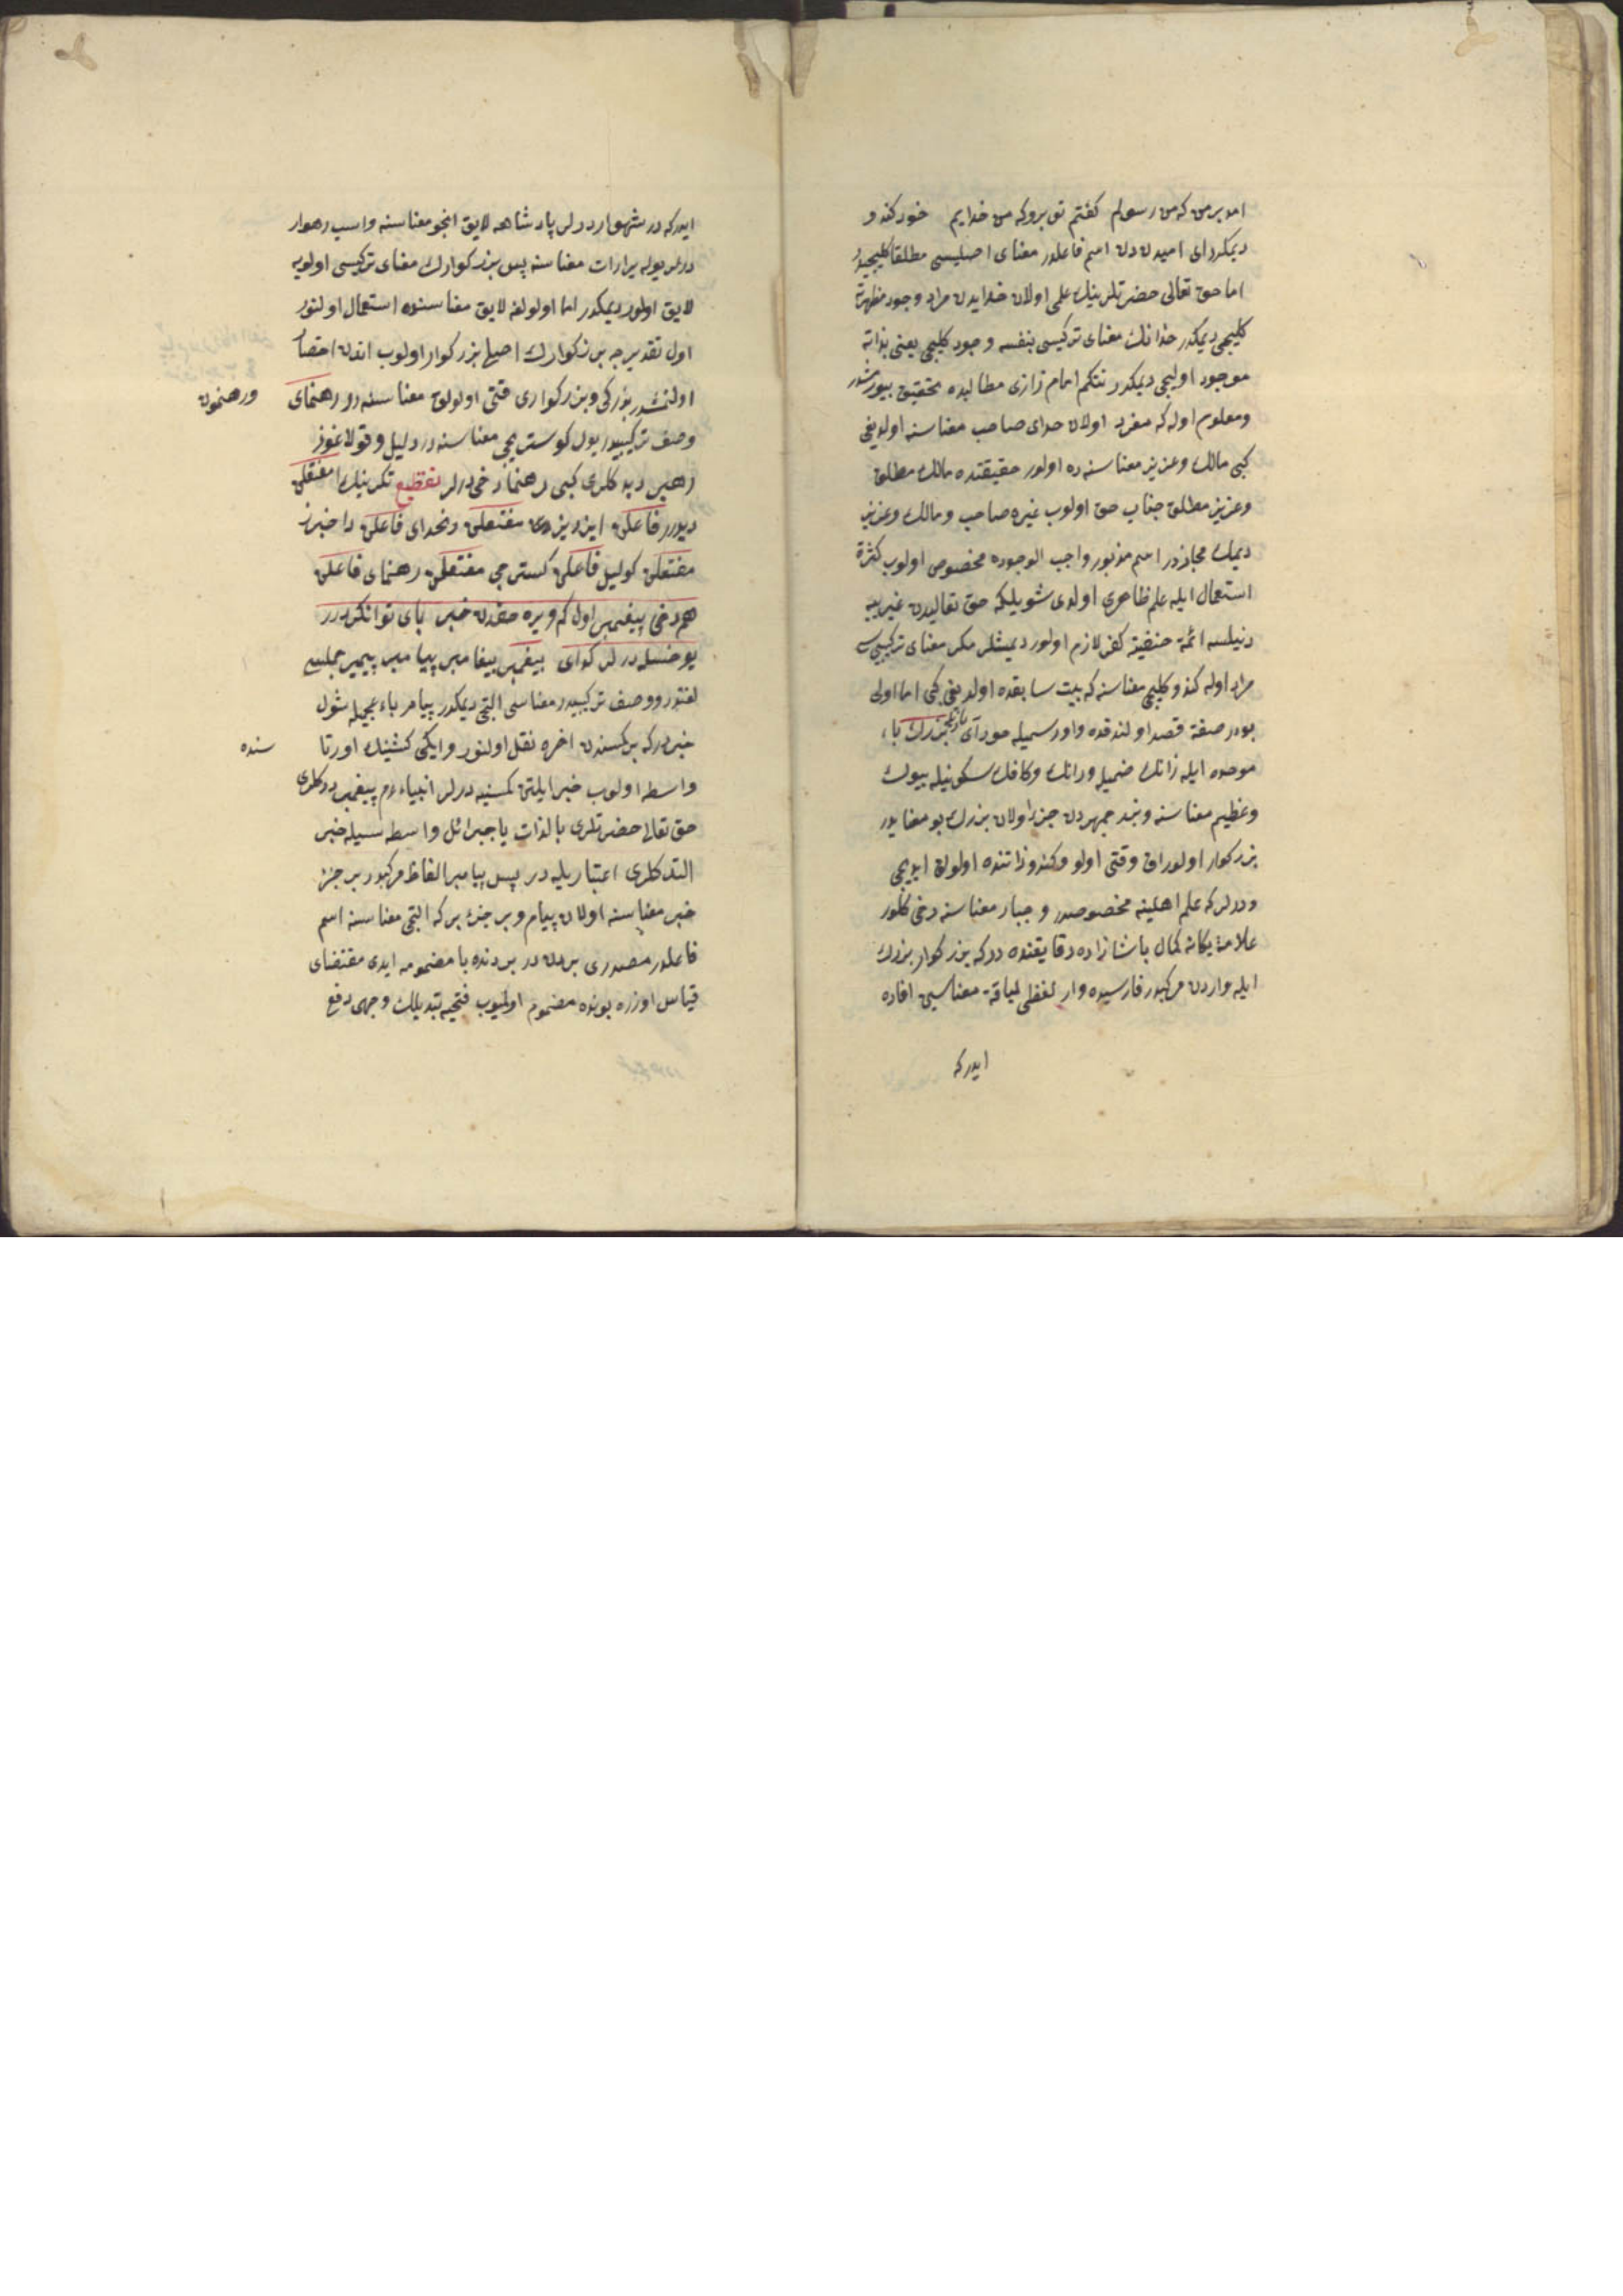 امد برمن که من رسولم کفتم تو برو که من خدایم خود کندو
دیمکدر ای امیدن دن اسم فاعلدر معنای اصلیسی مطلقا کلیجیدر
اما حق تعالی حضرتلرینك علمی اولان خدایدن مراد وجود مظهرینه
کلیجی دیمکدر خدانك معنای ترکیبی بنفسه وجود کلیجی یعنی بذاته
موجود اولیجی دیمکدر نتکم امام رازی مطالبده تحقیق بیورمشدر
ومعلوم اوله که مفرد اولان خدای صاحب معناسنه اولدیغی
کبی مالك وعزیز معناسنه ده اولور حقیقتده مالك مطلق
وعزیز مطلق جناب حق اولوب غیره صاحب ومالك وعزیز
دیمك مجازدر اسم مذبور واجب الوجوده مخصوص اولوب کثرة
استعمال ایله علم ظاهری اولدی شویلکه حق تعالیدن غیریه
دنیلسه ائمۀ حنفیه کفر لازم اولور دیمشلر مکر معنای ترکیبیسی
مراد اوله کندو کلیجی معناسنه که بیت سابقده اولدیغی کبی اما اولی
بودر صفة قصد اولندقده واو رسمیله خود آی بزرك باء
موحده ایله زانك ضمیله ورانك وکافك سکونیله بیوك
وعظیم معناسنه وبزرجمهردن جزء اولان بزرك بو معنایدر
بزرکوار اولوراق وقتی اولو وکندو ذاتنده اولولق ایدیجی
ودرلر که علم اهلینه مخصوصدر وجبار معناسنه دخی کلور
علامۀ یکانه کمال پاشا زاده دقایقنده در که بزرکوار بزرك
ایله واردن مرکبدر فارسیده وار لفظی لیاقة معناسین افاده
ایدر که
ایدر که در شهوار درلر پادشاهه لایق انجو معناسنه واسب رهوار
درلر یوله یرارات معناسنه پس بزرکوارك معنای ترکیبی اولویه
لایق اولور دیمکدر اما اولولغه لایق معناسنده استعمال اولنور
اول تقدیرجه بزرکوارك اصلی بزرکوار اولوب اندن اختصار
اولنمشدر بزرکی وبزرکواری قتی اولولق معناسنه در رهنمای ورهنمون
وصف ترکیبیدر یول کوستریجی معناسنه در دلیل وقولاغوز
رهبر دیدکلری کبی رهنما دخی درلر تقطیع تکرینك ا مفتعلن
دیورر فاعلن ایزد یزدی مفتعلن دخدای فاعلن داخبرز
مفتعلن کولیل فاعلن کستریجی مفتعلن رهنمای فاعلن
هم دخی پیغمبر اول کم ویره حقدن خبر بای توانکر در
یوخسله درلر کدای پیغمبر پیغامبر پیامبر پیمبر جمله سی
لغتدر ووصف ترکیبیدر معناسی الچی دیمکدر پیام باء عجمیله شول
خبردر که برکسندن اخره نقل اولنور وایکی کشینك اورتا سنده
واسطه اولوب خبر ایلتن کمسنیه درلر انبیاء دم پیغمبر ددکلری
حق تعالی حضرتلری بالذات یا جبرائل واسطه سیله خبر
التدکلری اعتباریله در پس پیامبر الفاظ مرکبدر بر جزء
خبر معناسنه اولان پیام وبر جزء بر که الچی معناسنه اسم
فاعلدر مصدری بردن در بردنده با مضمومه ایدی مقتضای
قیاس اوزره بونده مضموم اولیوب فتحیه تبدیلك وجهی دفع